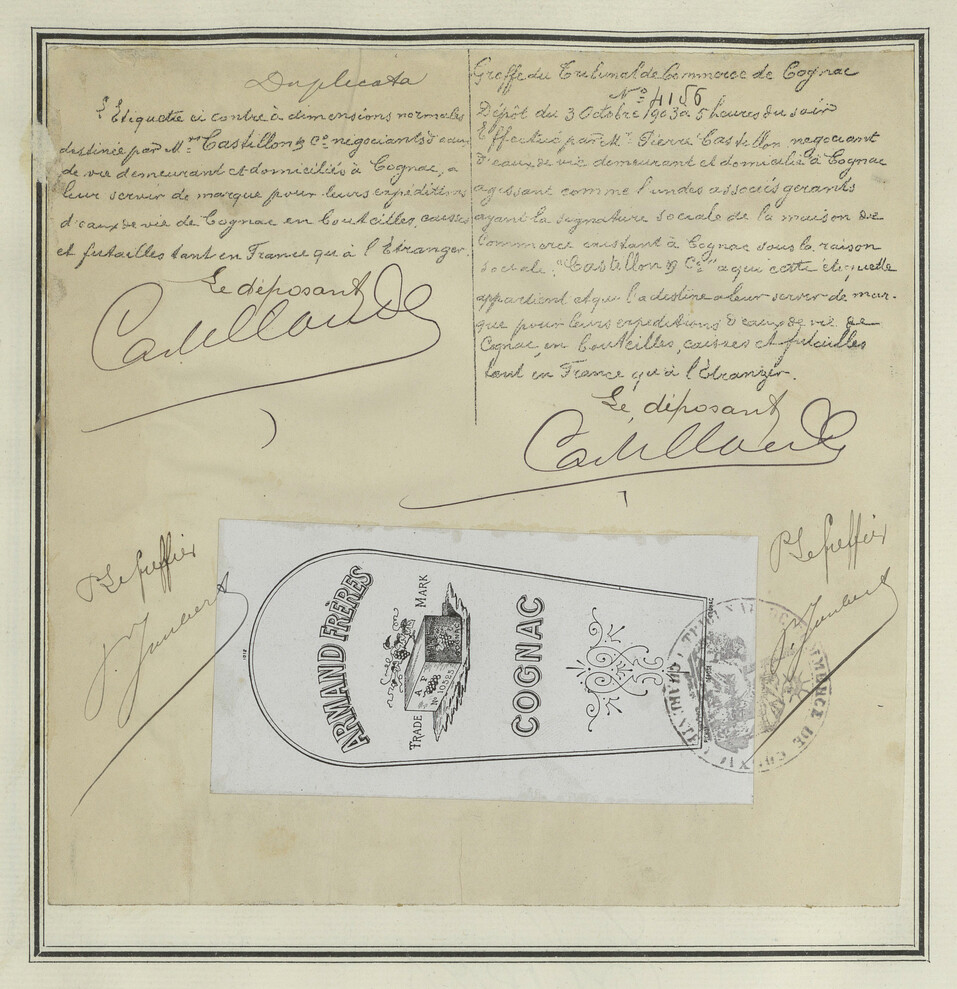 Duplicata
Etiquette ci contre à dimensions normales
destinée par Mrs Castillon & Co négociants d'eaux
de vie demeurant et domiciliés à Cognac, à
leur servir de marque pour leurs expéditions
d'eaux de vie de Cognac en bouteilles, caisses
et futailles tant en France qu'à l'Etranger.
Le déposant
Greffe du Tribunal de Commerce de Cognac
No 4156
Dépôt du 3 Octobre 1903 à 5 heures du soir
Effectué par Mr Pierre Castillon négociant
d'eaux de vie demeurant et domicilié à Cognac
agissant comme l'un des associés gérants
ayant la signature sociale de la maison de
Commerce existant à Cognac sous la raison
sociale "Castillon & Co" a qui cette étiquette
appartient et qui l'a destine a leur servir de mar-
que pour leurs expeditions d'eaux de vie de
Cognac, en bouteilles, caisses et futailles
tant en France qu'à l'Etranger.
Le déposant
P Le Greffier
P Le Greffier
ARMAND FRÈRES
TRADE MARK
A F
No 10525
COGNAC
COGNAC